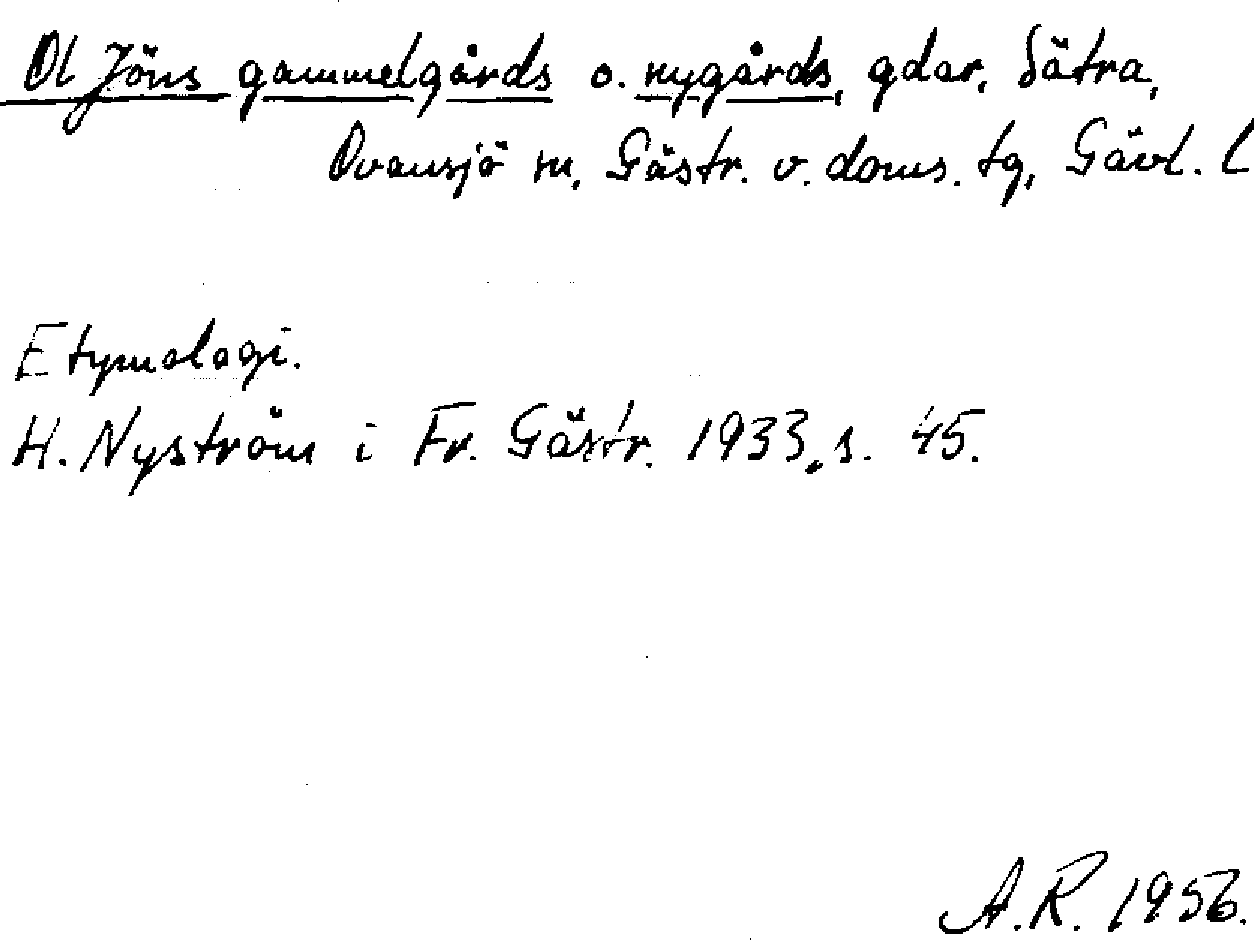 Ol Jöns gammelgårds o. nygårds, gdar, Sätra,
Ovansjö sn, Gästr. v. doms. tg, Gävl. l
Etymologi.
H. Nyström i Fr. Gästr. 1933, s. 45.
A.R. 1956.